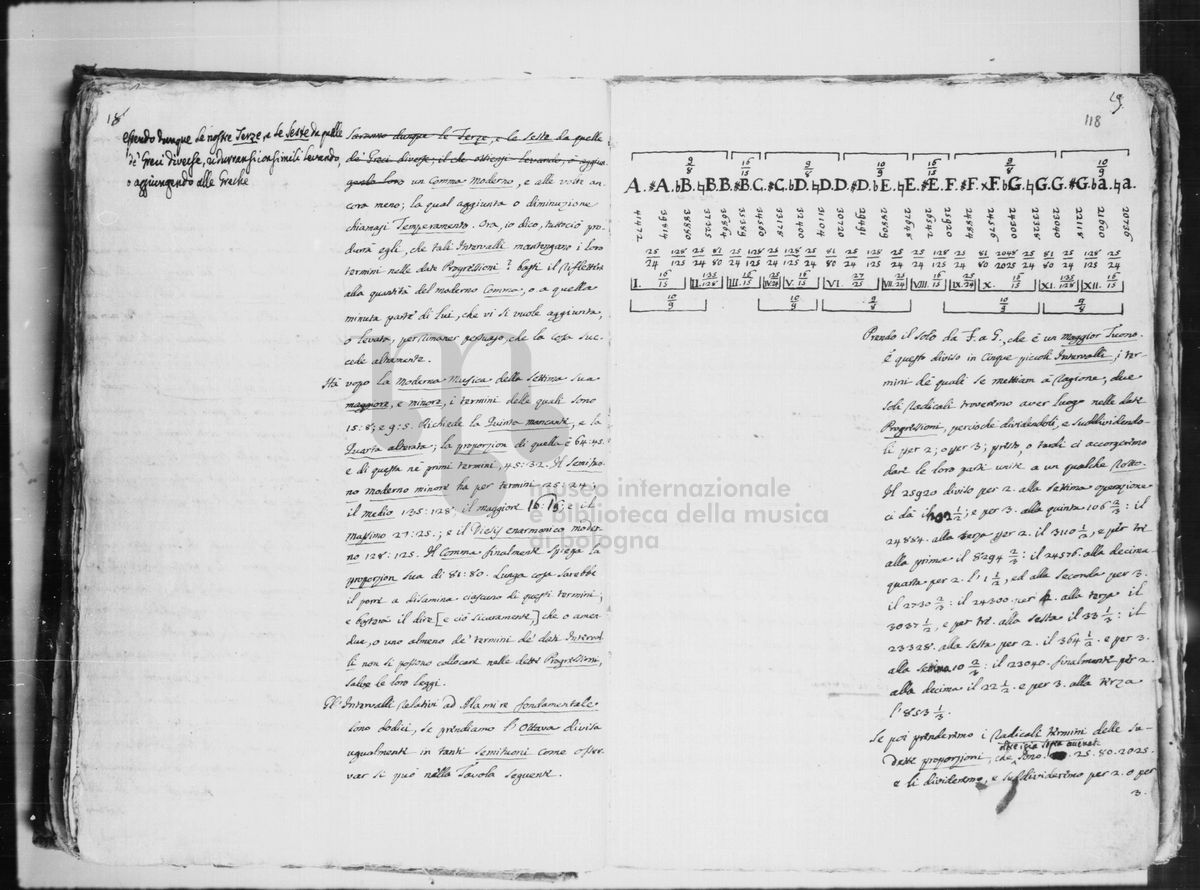 18
essendo dunque le nostre Terze, e le Seste da quelle
de' Greci diverse,
o aggiungendo alle Greche
Saranno dunque le Terze, e le Seste da quelle
de' Greci diverse; il che ottiensi levando, o aggiun-
gendo loro un Comma moderno, e alle volte an-
cora meno; la qual aggiunta o diminuzione
chiamasi Temperamento. Ora, io dico, tuttociò pro-
durrà egli, che tali Intervalli mantengano i loro
termini nelle date Progressioni? basti il riflettere
alla quantità del moderno Comma, o a quella
minuta parte di lui, che vi si vuole aggiunta,
o levata, per rimaner persuaso, che la cosa suc-
cede altramente.
Ha uopo la Moderna Musica della settima sua
maggiore, e minore, i termini delle quali sono
15:8; e 9:5. Richiede la Quinta mancante, e la
Quarta alterata; la proporzion di quella è 64:45
e di questa ne' primi termini, 45:32. Il Semituo-
no moderno minore ha per termini 25:24;
il medio 135:128; il maggiore 16:15; e il
Massimo 27:25; e il Diesis enarmonico moder-
no 128:125. Il Comma finalmente spiega la
proporzion sua di 81:80. Lunga cosa sarebbe
il porre a disamina ciascuno di questi termini;
e basterà il dire [e ciò sicuramente,] che o amen-
due, o uno almeno de' termini de' dati Interval-
li non si possono collocare nelle dette Progressioni,
salve le loro leggi.
Gl' Intervalli relativi ad Alamire fondamentale
sono dodici, se prendiamo l'Ottava divisa
ugualmente in tanti semituoni come osser-
var si può nella Tavola seguente.
59.
118
9/8 16/15 9/8 10/9 16/15 9/8 10/9
A. #A. bB. ♮B B. #B C. #C. bD. ♮D. D. #D. bE. ♮E. #E. F. #F. xF. bG. ♮G. G. #G. ba. ♮a.
41472 39814 38880 37325 36864 35389 34560 33178 32400 31104 30720 29491 28809 27648 26542 25920 24884 24576 24300 23328 23040 22118 21600 20736
25/24 128/125 25/24 81/80 25/24 128/125 25/24 128/125 25/24 81/80 25/24 128/125 25/24 128/125 25/24 81/80 2048/2025 25/24 81/80 25/24 128/125 25/24
I. 16/15 II. 135/128 III. 16/15 IV. 25/24 V. 16/15 VI. 27/25 VII. 25/24 VIII. 16/15 IX. 25/24 X. 16/15 XI. 135/128 XII. 16/15
10/9 10/9 9/8 10/9 9/8
Prendo il solo da F. a G., che è un maggior Tuono.
è questo diviso in Cinque piccoli Intervalli; i ter-
mini de' quali se mettiam a ragione, due
soli radicali troveremo aver luogo nelle date
Progressioni, percioché dividendoli, e suddividendo-
li per 2; o per 3; presto, o tardi ci accorgeremo
dare le loro parti unite a un qualche Rotto.
Il 25920 diviso per 2. alla settima operazione
ci dà il 202 1/2; e per 3. alla quinta 106 2/3: il
24884. alla terza per 2. il 3110 1/2, e per tre
alla prima il 8294 2/3: il 24576. alla decima-
quarta per 2. l' 1 1/2, ed alla seconda per 3.
il 2730 2/3: il 24300. per 2. alla terza il
3037 1/2, e per tre. alla sesta il 33 1/3: il
23328. alla sesta per 2. il 364 1/2. e per 3.
alla settima 10 2/3: il 23040. finalmente per 2.
alla decima il 22 1/2. e per 3. alla terza
l' 853 1/3.
Se poi prenderemo i radicali termini delle su-
dette proporzioni, che sono 25. 80. 2025.
e li divideremo, e suddivideremo per 2. o per
3.
museo internazionale
e biblioteca della musica
di bologna